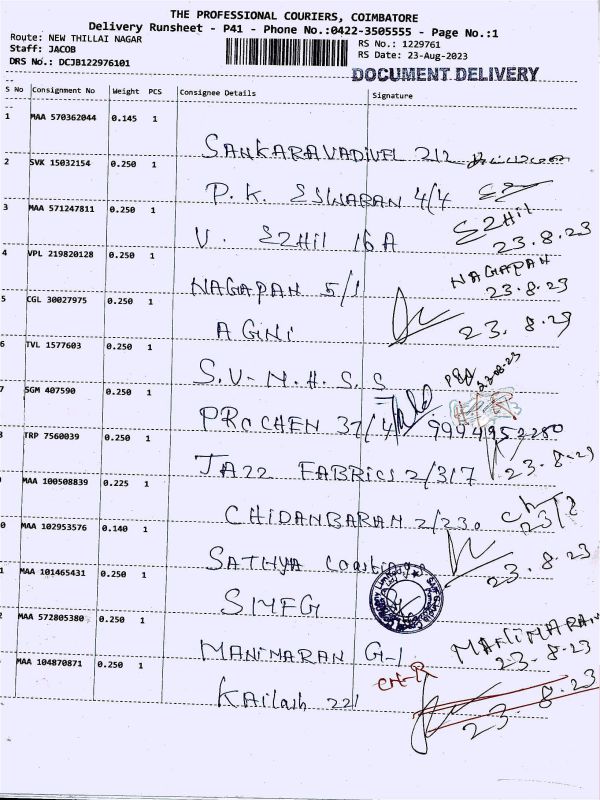 THE PROFESSIONAL COURIERS, COIMBATORE
Delivery Runsheet - P41 - Phone No.:0422-3505555 - Page No.:1
Route: NEW THILLAI NAGAR
RS No.: 1229761
Staff: JACOB
RS Date: 23-Aug-2023
DRS No.: DCJB122976101
DOCUMENT DELIVERY
S No Consignment No Weight PCS Consignee Details Signature
1 MAA 570362044 0.145 1
SANKARAVADIVEL 212
2 SVK 15032154 0.250 1
P. K. ESWARAN 4/4
3 MAA 571247811 0.250 1
EZHIL
V. EZHIL 16 A 23.8.23
4 VPL 219820128 0.250 1
NAGAPAN
NAGAPAN 5/1 23.8.23
5 CGL 30027975 0.250 1
A GINI 23.8.23
6 TVL 1577603 0.250 1
S.V.N.H.S.S 23.08.23
7 SGM 407590 0.250 1
PROCHEN 37/4 9994952280
TRP 7560039 0.250 1
JAZZ FABRICS 2/317 23.8.23
MAA 100508839 0.225 1
CHIDANBARAN 2/230 23/8
0 MAA 102953576 0.140 1
SATHYA Coatings 23.8.23
1 MAA 101465431 0.250 1
SMFG
2 MAA 572805380 0.250 1
MANIMARAN
MANIMARAN G-1 23.8.23
MAA 104870871 0.250 1
Kailash 221 23.8.23